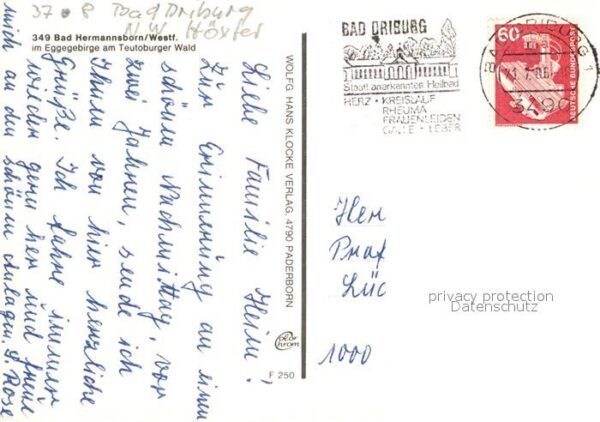 37 8 Bad Driburg
NW Höxter
349 Bad Hermannsborn/Westf.
im Eggegebirge am Teutoburger Wald
Liebe Familie Heim!
Zur Erinnerung an einen
schönen Nachmittag, vor
zwei Jahren, sende ich
Ihnen von hier herzliche
Grüße. Ich fahre immer
wieder gern her und freue
mich an den schönen Anlagen. Rose
WOLFG. HANS KLOCKE VERLAG, 4790 PADERBORN
F 250
BAD DRIBURG
Staatl. anerkanntes Heilbad
HERZ · KREISLAUF
RHEUMA
FRAUENLEIDEN
GALLE · LEBER
3490
60
DEUTSCHE BUNDESPOST
Herr
Prof
Lüc
1000
privacy protection
Datenschutz